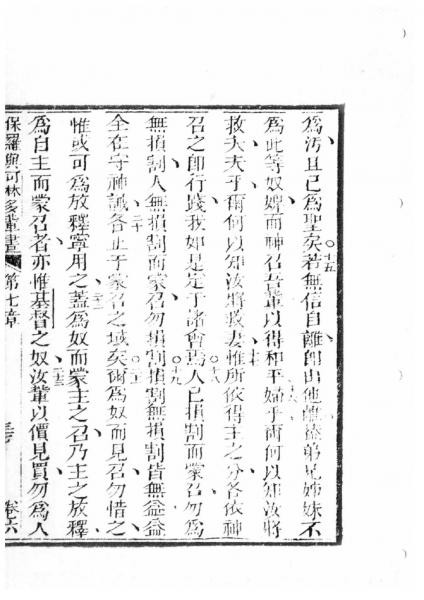 為污且已為聖矣若無信自離即由他離蓋弟兄姊妹不
十五
為此等奴婢而神召吾輩以得和平婦乎爾何以知汝將
十六
救夫夫乎爾何以知汝將救妻惟所依得主之分各依神
十七
召之即行踐我如是定于諸會焉人已損割而蒙召勿為
十八
無損割人無損割而蒙召勿損割損割無損割皆無益益
十九
全在守神誡各止于蒙召之域矣爾為奴而見召勿惜之
二十
惟或可為放釋寧用之蓋為奴而蒙主之召乃主之放釋
二二
為自主而蒙召者亦惟基督之奴汝輩以價見買勿為人
二三
保羅與可林多輩書 第七章 卷六